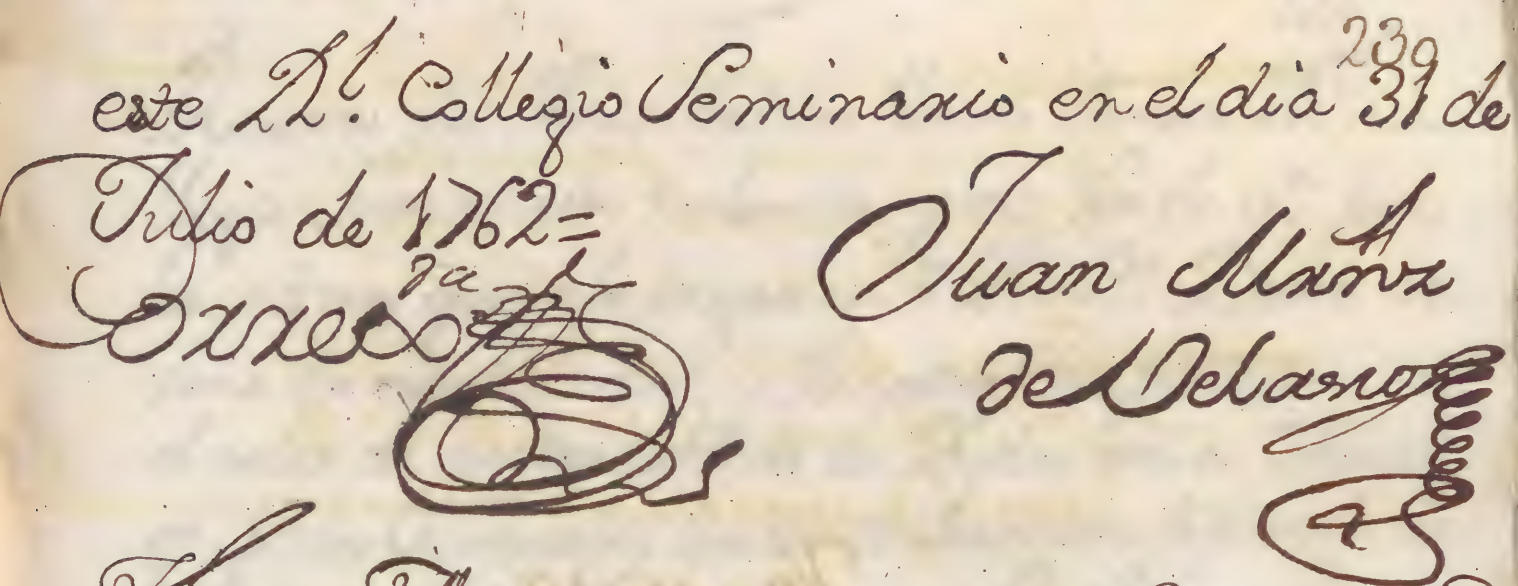 239
este Rl. Collegio Seminario en el dia 31 de
Julio de 1762=
Juan Muñoz
de Velasco